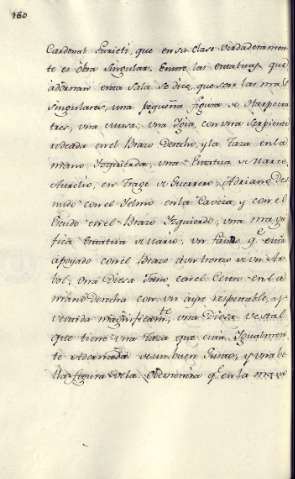 160
Cardenal Furieti, que en su clase verdaderamen
te es obra singular. Entre las estatuas que
adornan esta sala se dice, que son las mas
singulares, una pequeña figura de Harpocra
tes, una Musa, una Igia, con una serpiente
rodeada en el Brazo derecho, y la Taza en la
mano Izquierda, una Estatua de Marco
Aurelio, en Traxe de Guerrero, Adriano des
nudo con el Yelmo en la Caveza y con el
Escudo en el Brazo Izquierdo, una mag
fica Estatua de un Fauno q.e está
apoyado con el Brazo al tronco de un Ar
bol, Otra Diosa Juno, con el Cetro en la
mano derecha con un ayre respetable, a
vestida magnificam.te, una Diosa Vestal
que tiene una taza que está Igualmen
te vestida de un buen Gusto, y una be
lla figura de la q.e en la mano